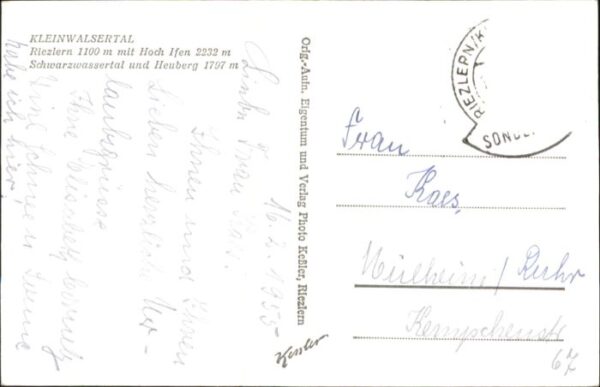 KLEINWALSERTAL
Riezlern 1100 m mit Hoch Ifen 2232 m
Schwarzwassertal und Heuberg 1797 m
16.2.1955
Liebe Frau
Ihnen und Ihren
Lieben herzliche Ur-
laubsgrüsse
Ihre
Eine schöne Sonne
habe ich hier.
Orig.-Aufn. Eigentum und Verlag Photo Keßler, Riezlern
Kessler
RIEZLERN/K
SONDE
Frau
Kaes,
Mülheim/Ruhr
67